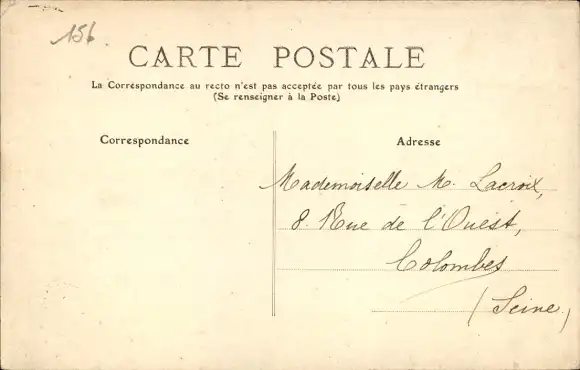 156
CARTE POSTALE
La Correspondance au recto n'est pas acceptée par tous les pays étrangers
(Se renseigner à la Poste)
Correspondance
Adresse
Mademoiselle M. Lacroix,
8. Rue de l'Ouest,
Colombes
(Seine)